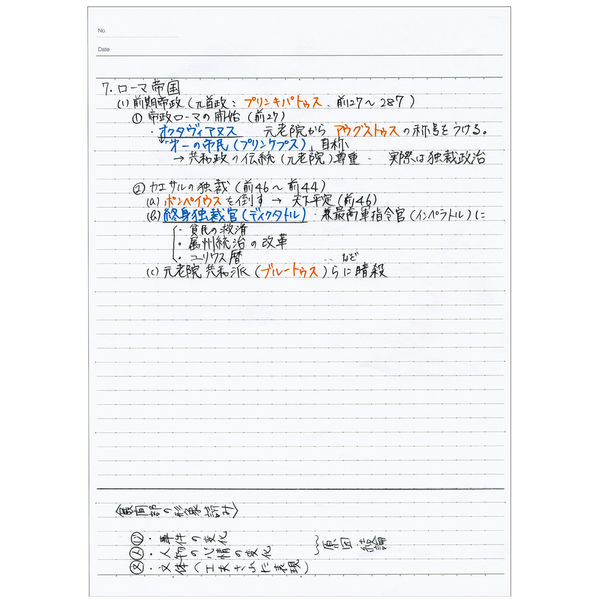 No.
Date
7. ローマ帝国
(1) 前期帝政 (元首政: プリンキパトゥス 、前27〜287)
① 帝政ローマの開始 (前27)
・オクタヴィアヌス 元老院から アウグストゥスの称号をうける。
オ一の市民(プリンケプス)、自称
→ 共和政の伝統(元老院)尊重・ 実際は独裁政治
② カエサルの独裁 (前46〜前44)
(a) ポンペイウスを倒す → 天下平定(前46)
(b) 終身独裁官(ディクタトル)・兼最高軍指令官(インペラトル)に
・貧民の救済
・属州統治の改革
・ユリウス暦 ‥など
(c) 元老院共和派(ブルートゥス)らに暗殺
・事件の変化
・人物の心情の変化
原因
・文体(工夫された表現)